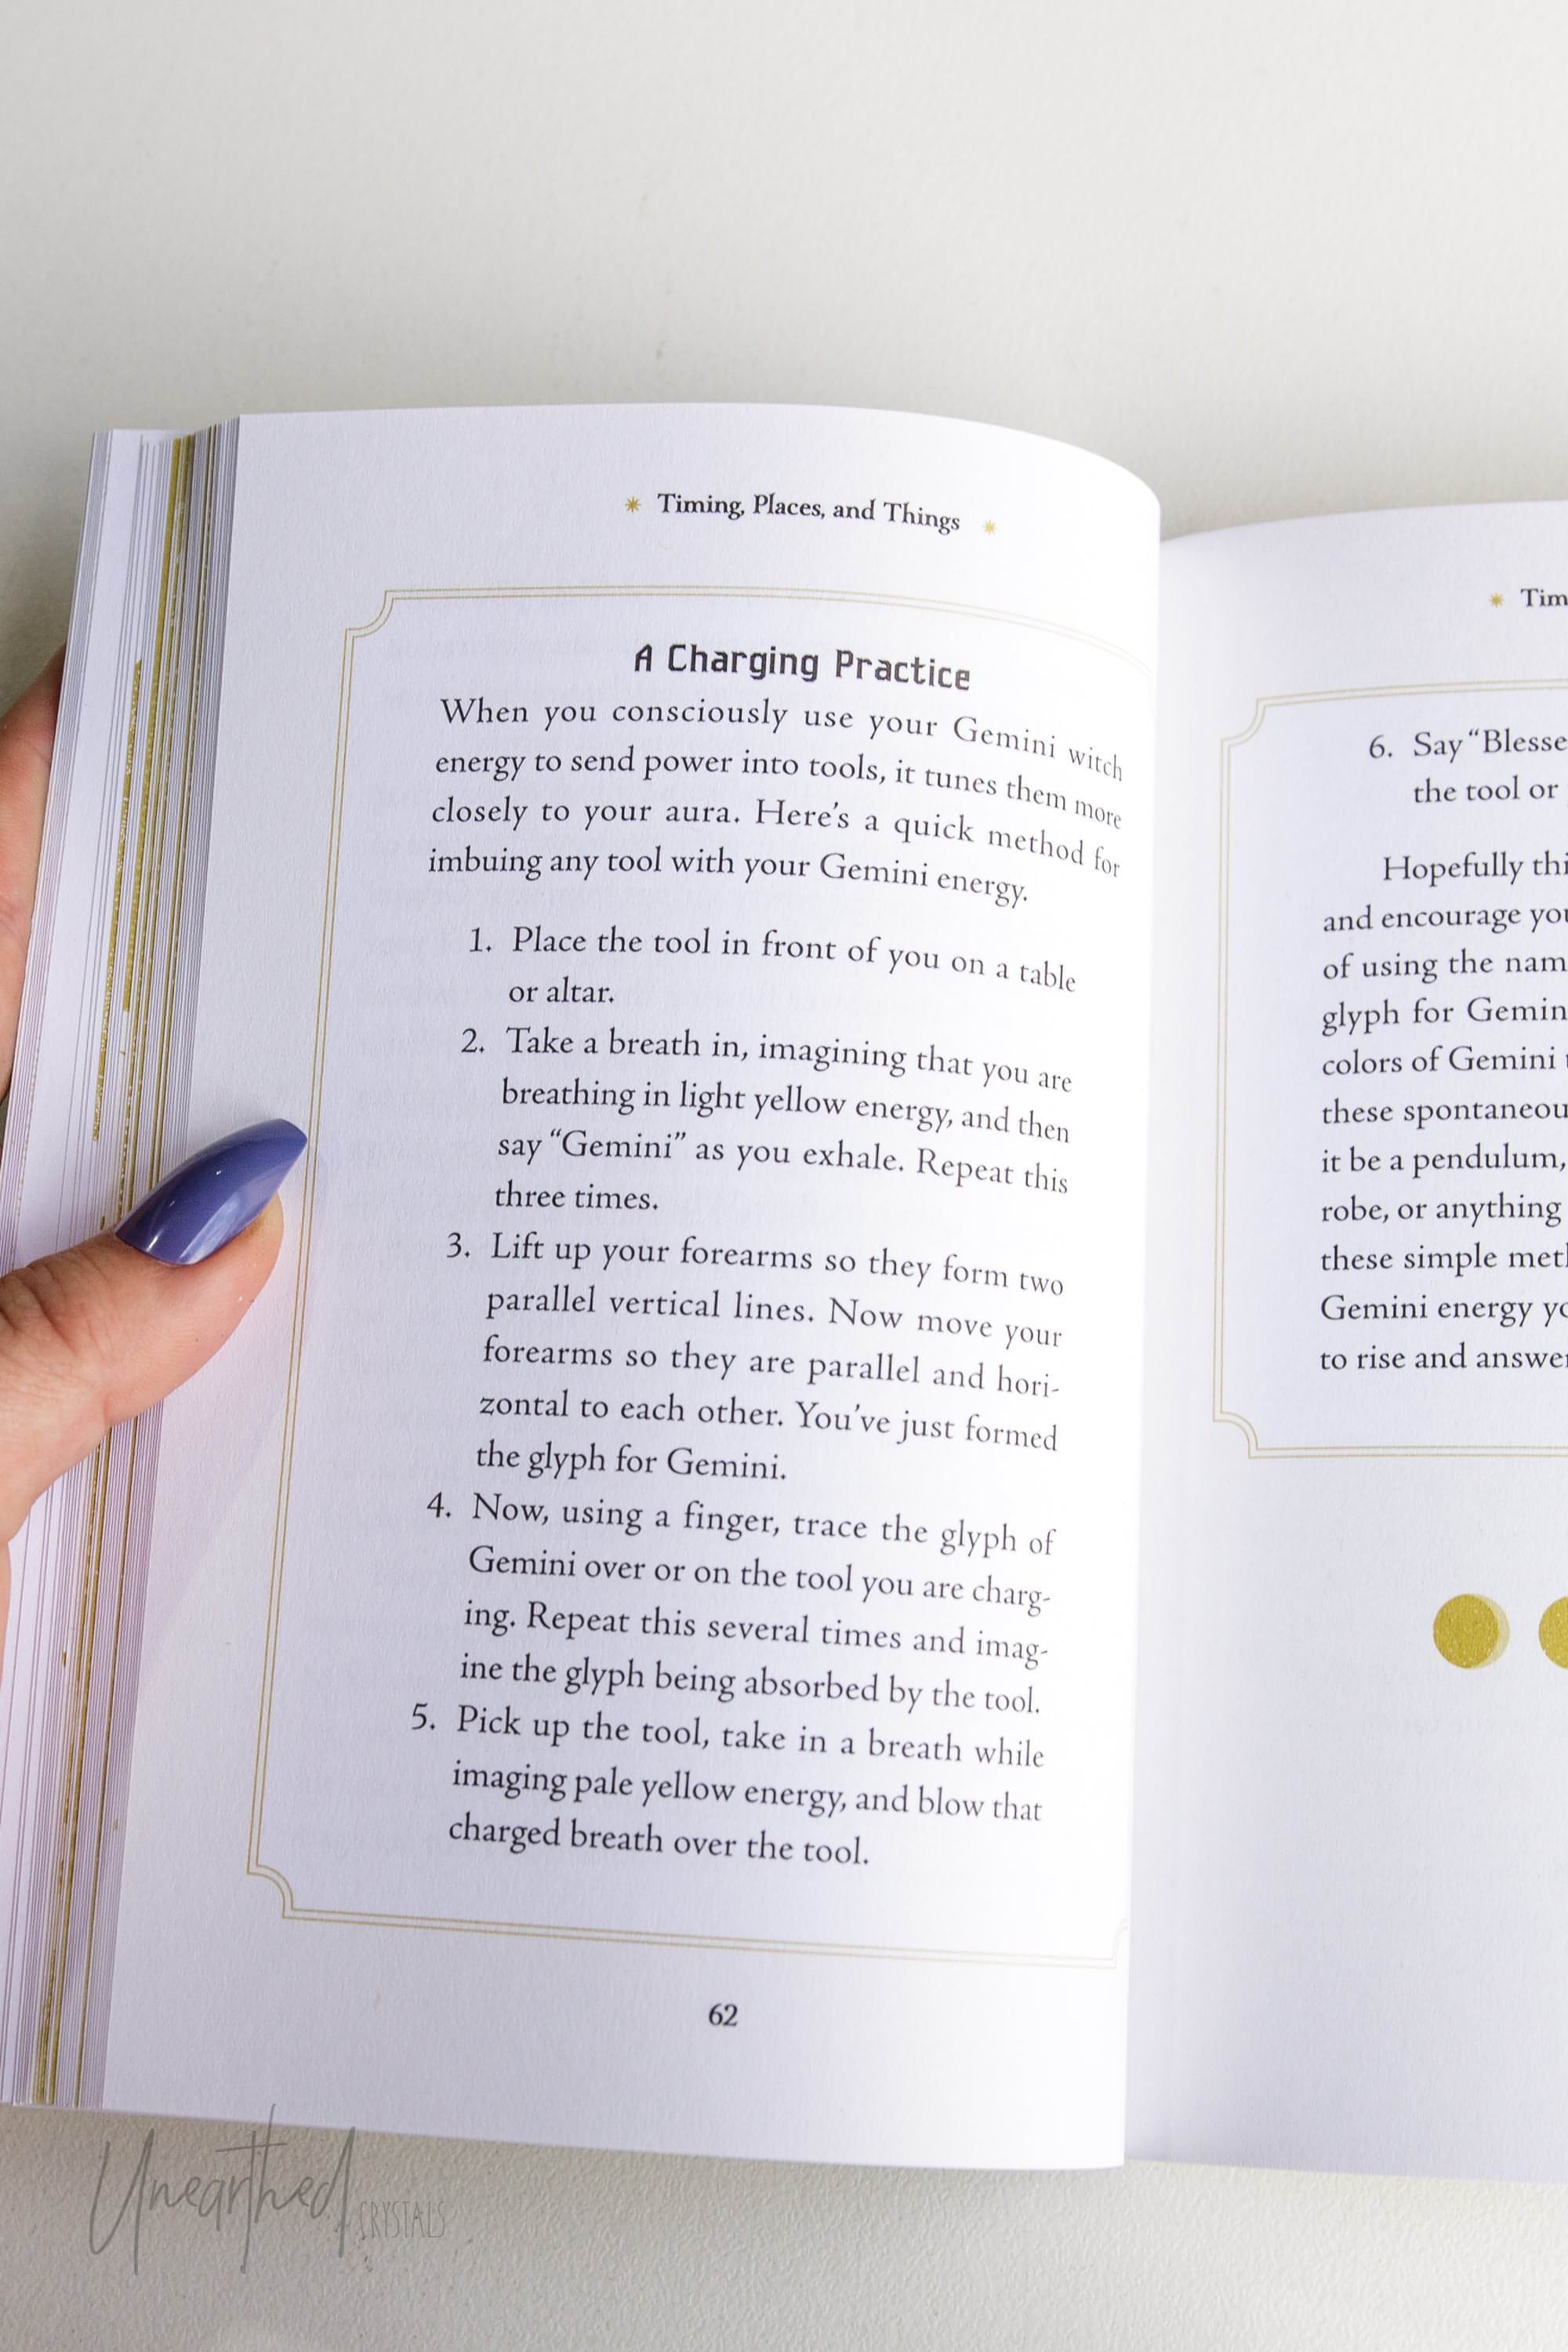 Timing, Places, and Things
A Charging Practice
When you consciously use your Gemini witch
energy to send power into tools, it tunes them more
closely to your aura. Here's a quick method for
imbuing any tool with your Gemini energy.
1. Place the tool in front of you on a table
or altar.
2. Take a breath in, imagining that you are
breathing in light yellow energy, and then
say “Gemini” as you exhale. Repeat this
three times.
3. Lift up your forearms so they form two
parallel vertical lines. Now move your
forearms so they are parallel and hori-
zontal to each other. You've just formed
the glyph for Gemini.
4. Now, using a finger, trace the glyph of
Gemini over or on the tool you are charg-
ing. Repeat this several times and imag-
ine the glyph being absorbed by the tool.
5. Pick up the tool, take in a breath while
imaging pale yellow energy, and blow that
charged breath over the tool.
62
Tim
6. Say “Blesse
the tool or
Hopefully thi
and encourage you
of using the nam
glyph for Gemin
colors of Gemini
these spontaneou
it be a pendulum,
robe, or anything
these simple met
Gemini energy yo
to rise and answe
Unearthed
CRYSTALS